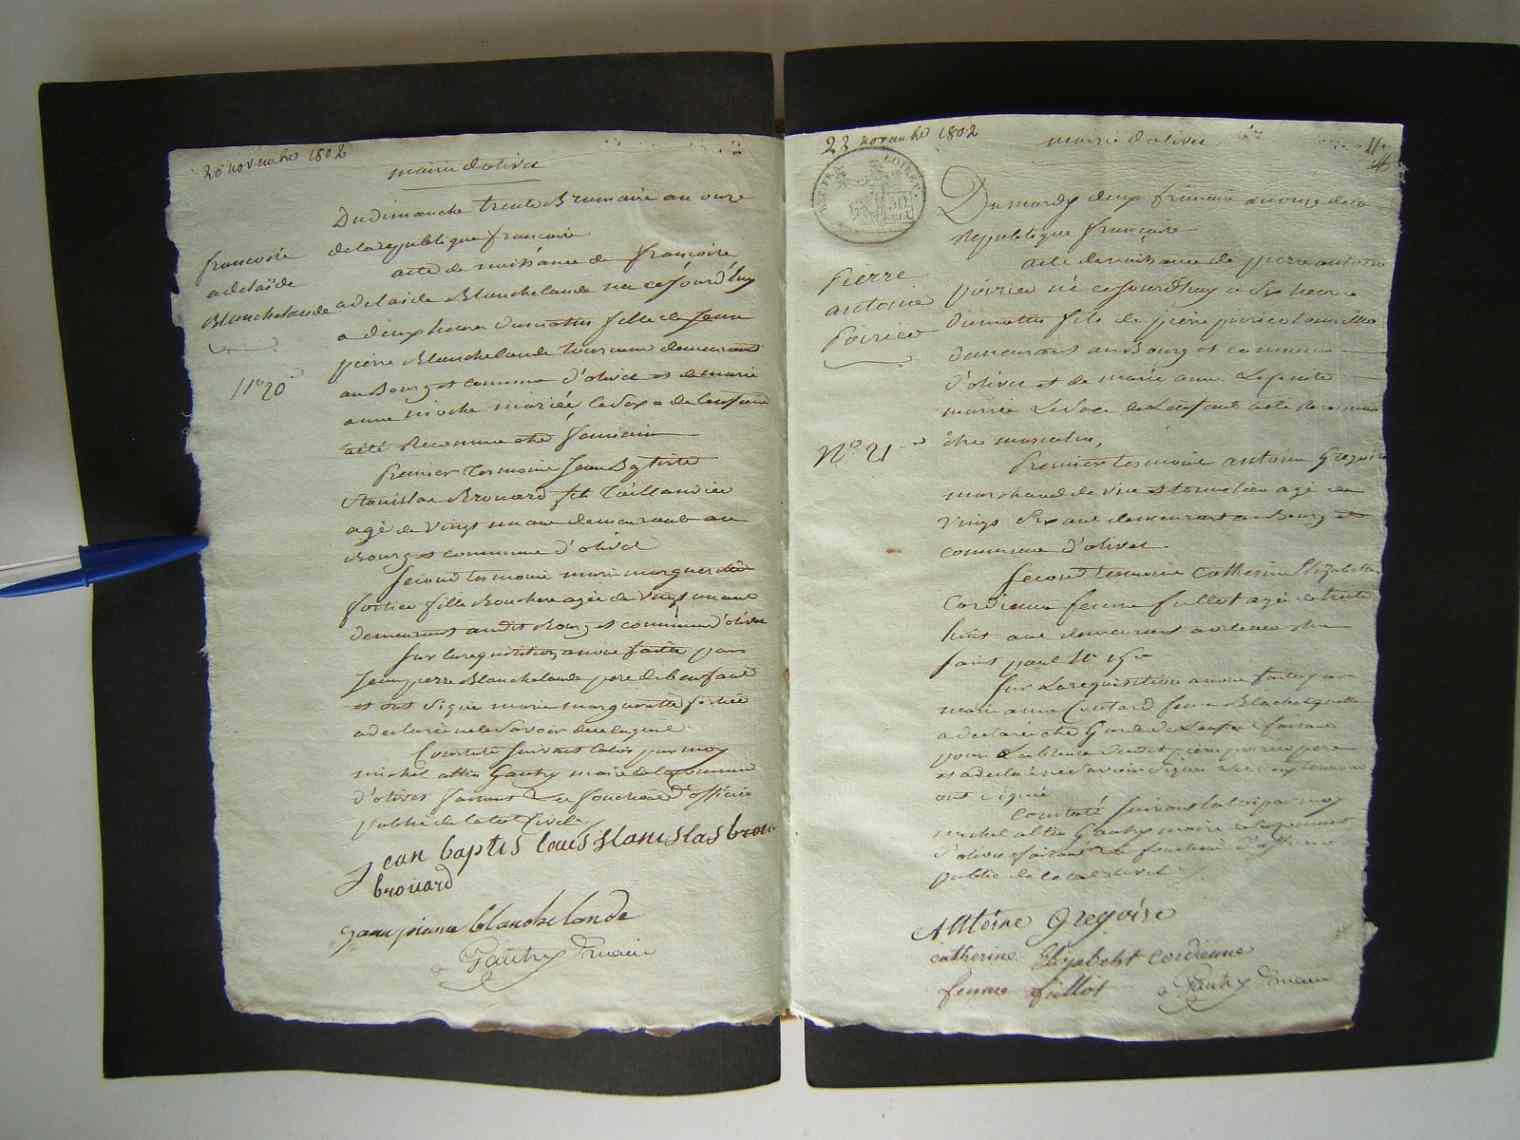 20 novembre 1802
mairie d'olivet
Du dimanche trente Brumaire an onze
de la republique francoise
francoise
adelaïde
Blanchelande
n° 20
acte de naissance de francoise
adelaide Blanchelande nee cejourd'huy
a deux heures du matin fille de Jean
pierre Blanchelande demeurant
au Bourg et commune d'olivet et de marie
anne mioche mariée le sexe de l'enfant
a été reconnu etre feminin
premier temoin Jean Baptiste
stanislas Brouard fils taillandier
agé de vingt un ans demeurant au
Bourg et commune d'olivet
second temoin marie marguerite
fortier fille agée de vingt un ans
demeurant audit Bourg et commune d'olivet
sur la requisition a nous faite par
Jean pierre Blanchelande pere de l'enfant
et ont signé marie marguerite fortier
a declaré ne le savoir de ce enquise
Constaté suivant la loi par moy
michel altin Gautry maire de la commune
d'olivet faisant les fonctions d'officier
public de l'etat civil
Jean baptis louis stanislas brou
brouard
jean pierre blanchelande
Gautry maire
23 novembre 1802
mairie d'olivet
11
REP. FRA. LOIRET
Du mardy deux frimaire an onze de la
Republique françoise
Pierre
antoine
Poirier
N° 21
acte de naissance de pierre antoine
poirier né cejourd'huy a six heures
du matin fils de pierre poirier
demeurant au Bourg et commune
d'olivet et de marie anne
mariés Le sexe de L'enfant a été reconnu
être masculin,
Premier temoin antoine Gregoire
marchand de vin et tonnelier agé de
vingt six ans demeurant au Bourg et
commune d'olivet
second temoin Catherine Elizabeth
Cordienne femme fullot agée de trente
huit ans demeurant a orleans rue
saint paul n°
sur la requisition a nous faite par
marie anne Coutard
a declaré etre Garde de L'enfant faisant
pour L'absence dudit pierre poirier pere
et a declaré ne savoir signer les temoins
ont signé
Constaté suivant la loi par moy
michel altin Gautry maire de la commune
d'olivet faisant les fonctions d'officier
public de l'etat civil
Antoine Gregoire
catherine Elizabeht cordienne
femme fullot
Gautry maire